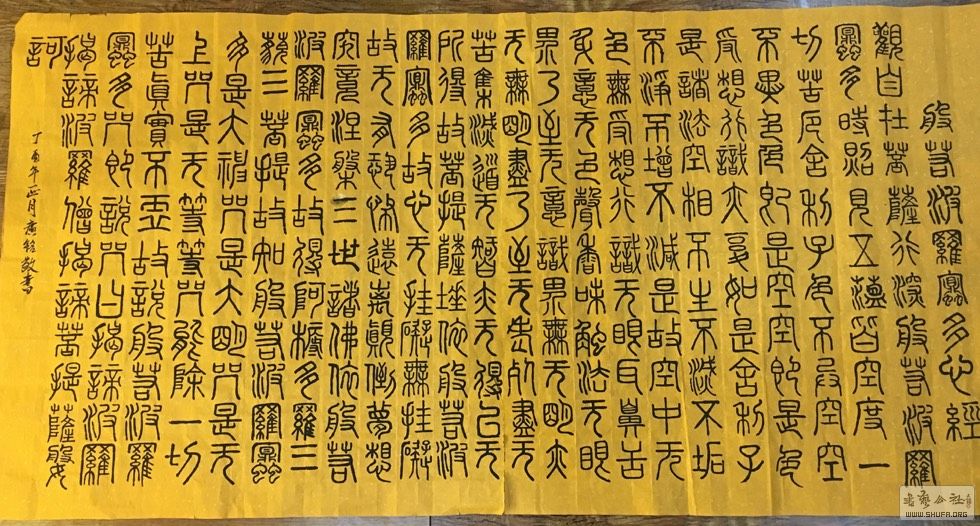 般若波羅蜜多心經
觀自在菩薩行深般若波羅
蜜多時照見五蘊皆空度一
切苦厄舍利子色不異空空
不異色色即是空空即是色
受想行識亦復如是舍利子
是諸法空相不生不滅不垢
不淨不增不減是故空中无
色無受想行識无眼耳鼻舌
身意无色聲香味觸法无眼
界乃至无意識界無无明亦
无無明盡乃至无老死盡无
苦集滅道无智亦无得以无
所得故菩提薩埵依般若波
羅蜜多故心无挂礙無挂礙
故无有恐怖遠離顛倒夢想
究竟涅槃三世諸佛依般若
波羅蜜多故得阿耨多羅三
藐三菩提故知般若波羅蜜
多是大神咒是大明咒是无
上咒是无等等咒能除一切
苦真實不虛故說般若波羅
蜜多咒即說咒曰揭諦波羅
揭諦波羅僧揭諦菩提薩婆
訶
丁酉年正月敬書
WWW.SHUFA.ORG